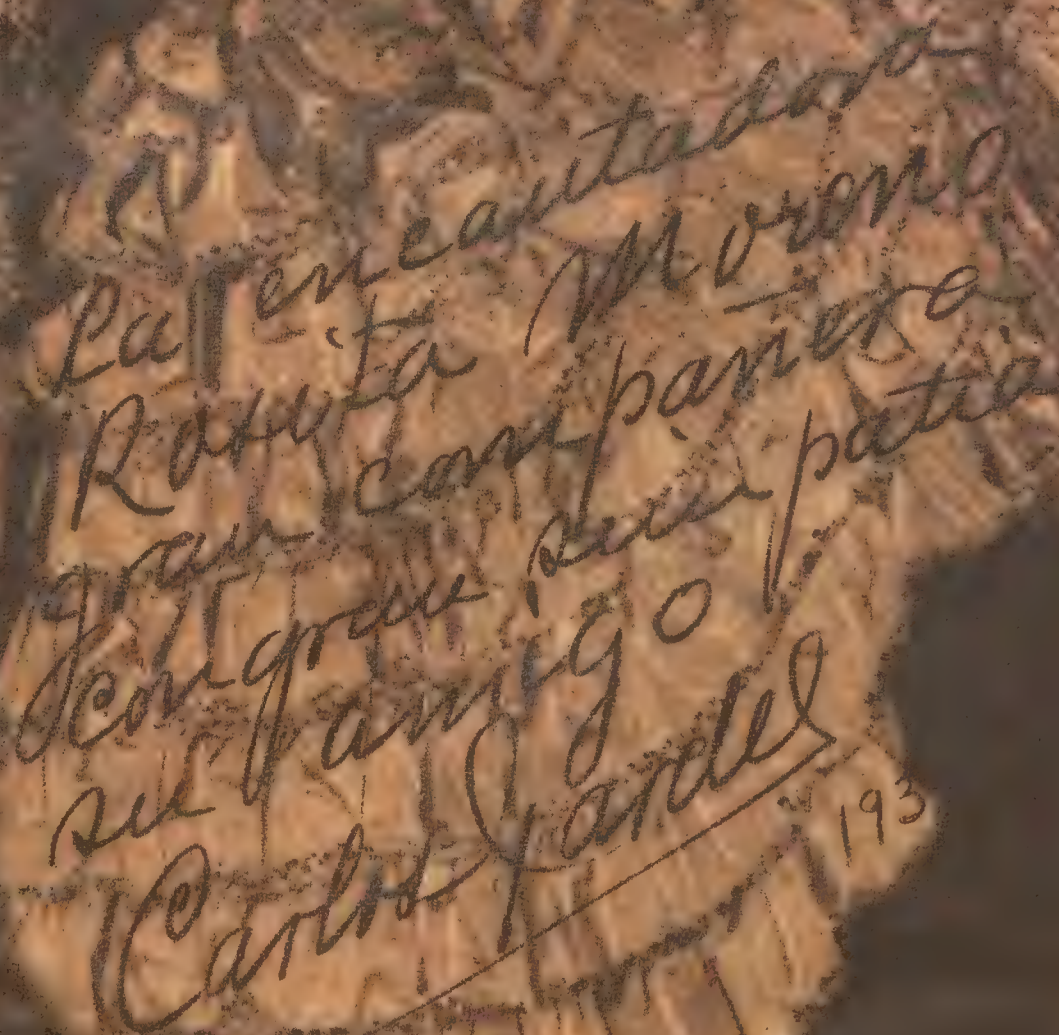 La encantadora
Rosita Moreno
gran compañera
con gran simpatia
su amigo
Carlos Gardel
193